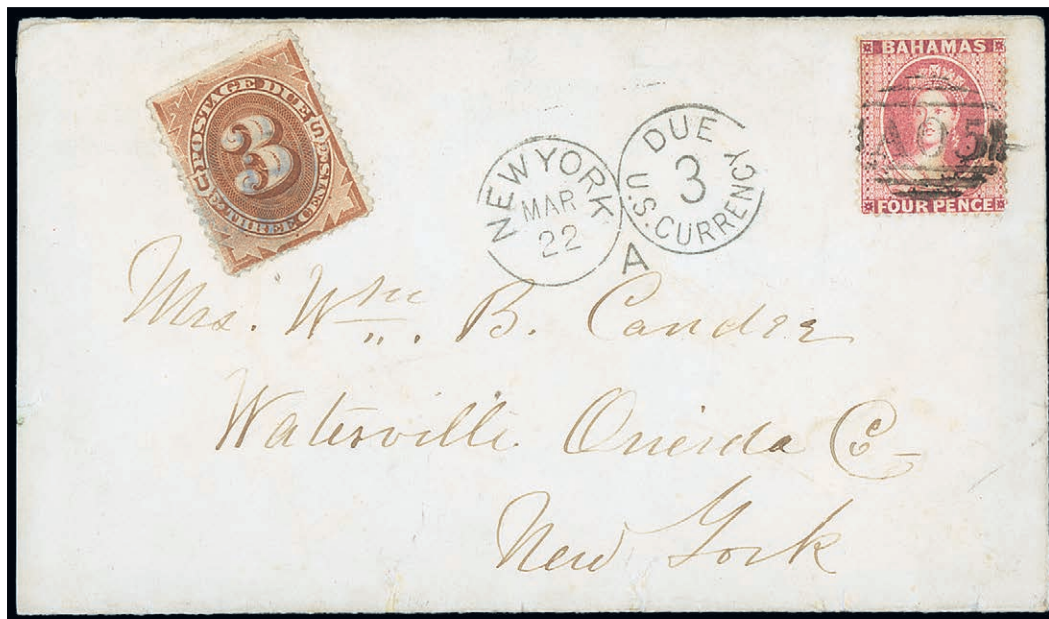 POSTAGE DUE
3
U.S. THREE CENTS
NEW YORK
MAR
22
DUE
3
U.S. CURRENCY
A
BAHAMAS
A05
FOUR PENCE
Mrs. Wm. B. Candee
Waterville Oneida Co
New York